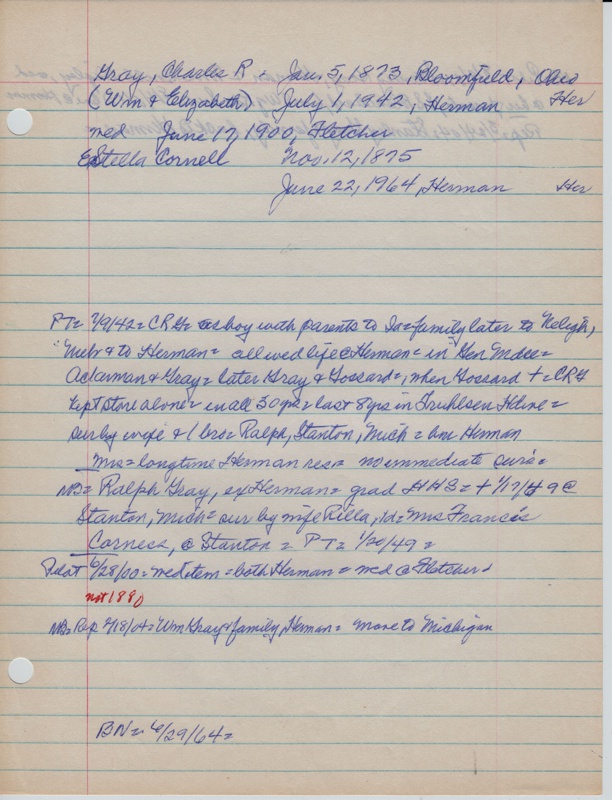 Gray, Charles R. Jan. 5, 1873, Bloomfield, Ohio
(Wm & Elizabeth) July 1, 1942, Herman Her
med June 17, 1900, Fletcher
Estella Cornell Nov. 12, 1875
June 22, 1964, Herman Her
PT= 7/9/42= CRG= as boy with parents to Ia= family later to Neligh,
Nebr & to Herman= all wed life @ Herman= in Gen Mdse=
Ackerman & Gray= later Gray & Gossard=, when Gossard += CRG
kept store alone= in all 30 yrs= last 8 yrs in Truhlsen Hdwe=
sur by wife & 1 bro= Ralph, Stanton, Mich= bur Herman
Mrs= longtime Herman res= no immediate surs=
NB= Ralph Gray, ex Herman= grad HHS= + 1/17/49 @
Stanton, Mich= sur by wife Rilla, 1d= Mrs Francis
Corness, @ Stanton= PT= 1/20/49=
Pilot 6/28/00= wed item= both Herman= med @ Fletcher
not 1880
NB= Rep 7/18/04= Wm Gray & family, Herman= move to Michigan
BN= 6/29/64=